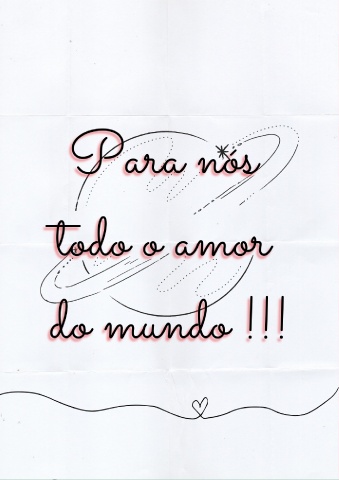 Para nós
todo o amor
do mundo !!!